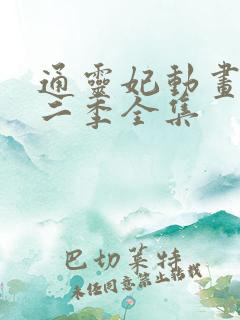 通靈妃動畫
二季全集
巴切萊特
未经同意禁止转载